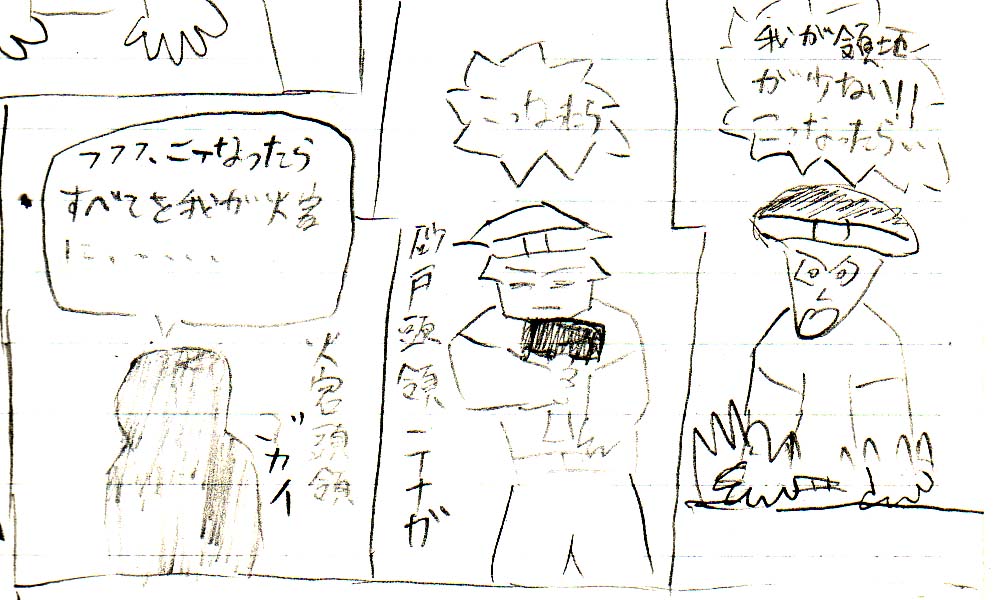 我が領地
が少ない!!
こうなったら…
こうなれら
砂戸頭領 ニナガ
フフフ、こうなったら
すべてを我が火宮
に、....
火宮頭領
ゴカイ